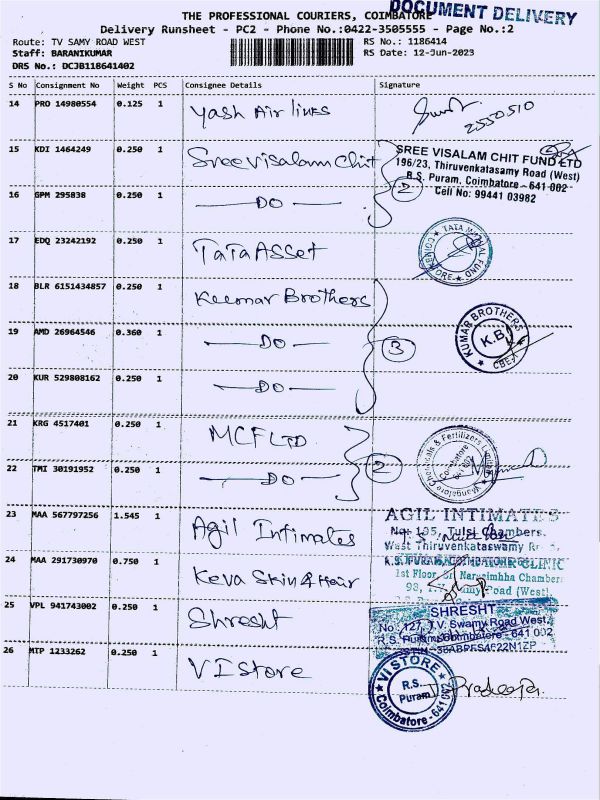 THE PROFESSIONAL COURIERS, COIMBATORE
DOCUMENT DELIVERY
Delivery Runsheet - PC2 - Phone No.:0422-3505555 - Page No.:2
Route: TV SAMY ROAD WEST RS No.: 1186414
Staff: BARANIKUMAR RS Date: 12-Jun-2023
DRS No.: DCJB118641402
S No Consignment No Weight PCS Consignee Details Signature
14 PRO 14980554 0.125 1 Yash Air lines 2550510
15 KDI 1464249 0.250 1 Sree Visalam Chit
SREE VISALAM CHIT FUND LTD
196/23, Thiruvenkatasamy Road (West)
R.S. Puram, Coimbatore - 641 002
Cell No: 99441 03982
16 GPM 295838 0.250 1 DO 2
17 EDQ 23242192 0.250 1 Tata Asset
TATA MUTUAL FUND
COIMBATORE
18 BLR 6151434857 0.250 1 Kumar Brothers
KUMAR BROTHERS
K.B.
CBE
19 AMD 26964546 0.360 1 DO 3
20 KUR 529808162 0.250 1 DO
21 KRG 4517401 0.250 1 MCF LTD.
Mangalore Chemicals & Fertilizers Limited
Coimbatore
22 TMI 30191952 0.250 1 DO 2
23 MAA 567797256 1.545 1 Agil Intimates
AGIL INTIMATES
No: 195, Tulsi Chambers,
West Thiruvenkataswamy
24 MAA 291730970 0.750 1 Keva Skin & Hair
CLINIC
1st Floor, Sri Narasimhha Chamber
98, Road (West),
25 VPL 941743002 0.250 1 Shresht
SHRESHT
No. 127, T.V. Swamy Road West,
R.S. Puram, Coimbatore - 641 002
26 MTP 1233262 0.250 1 VI store
VI STORE
R.S. Puram
Coimbatore - 641 002
Pradeepa